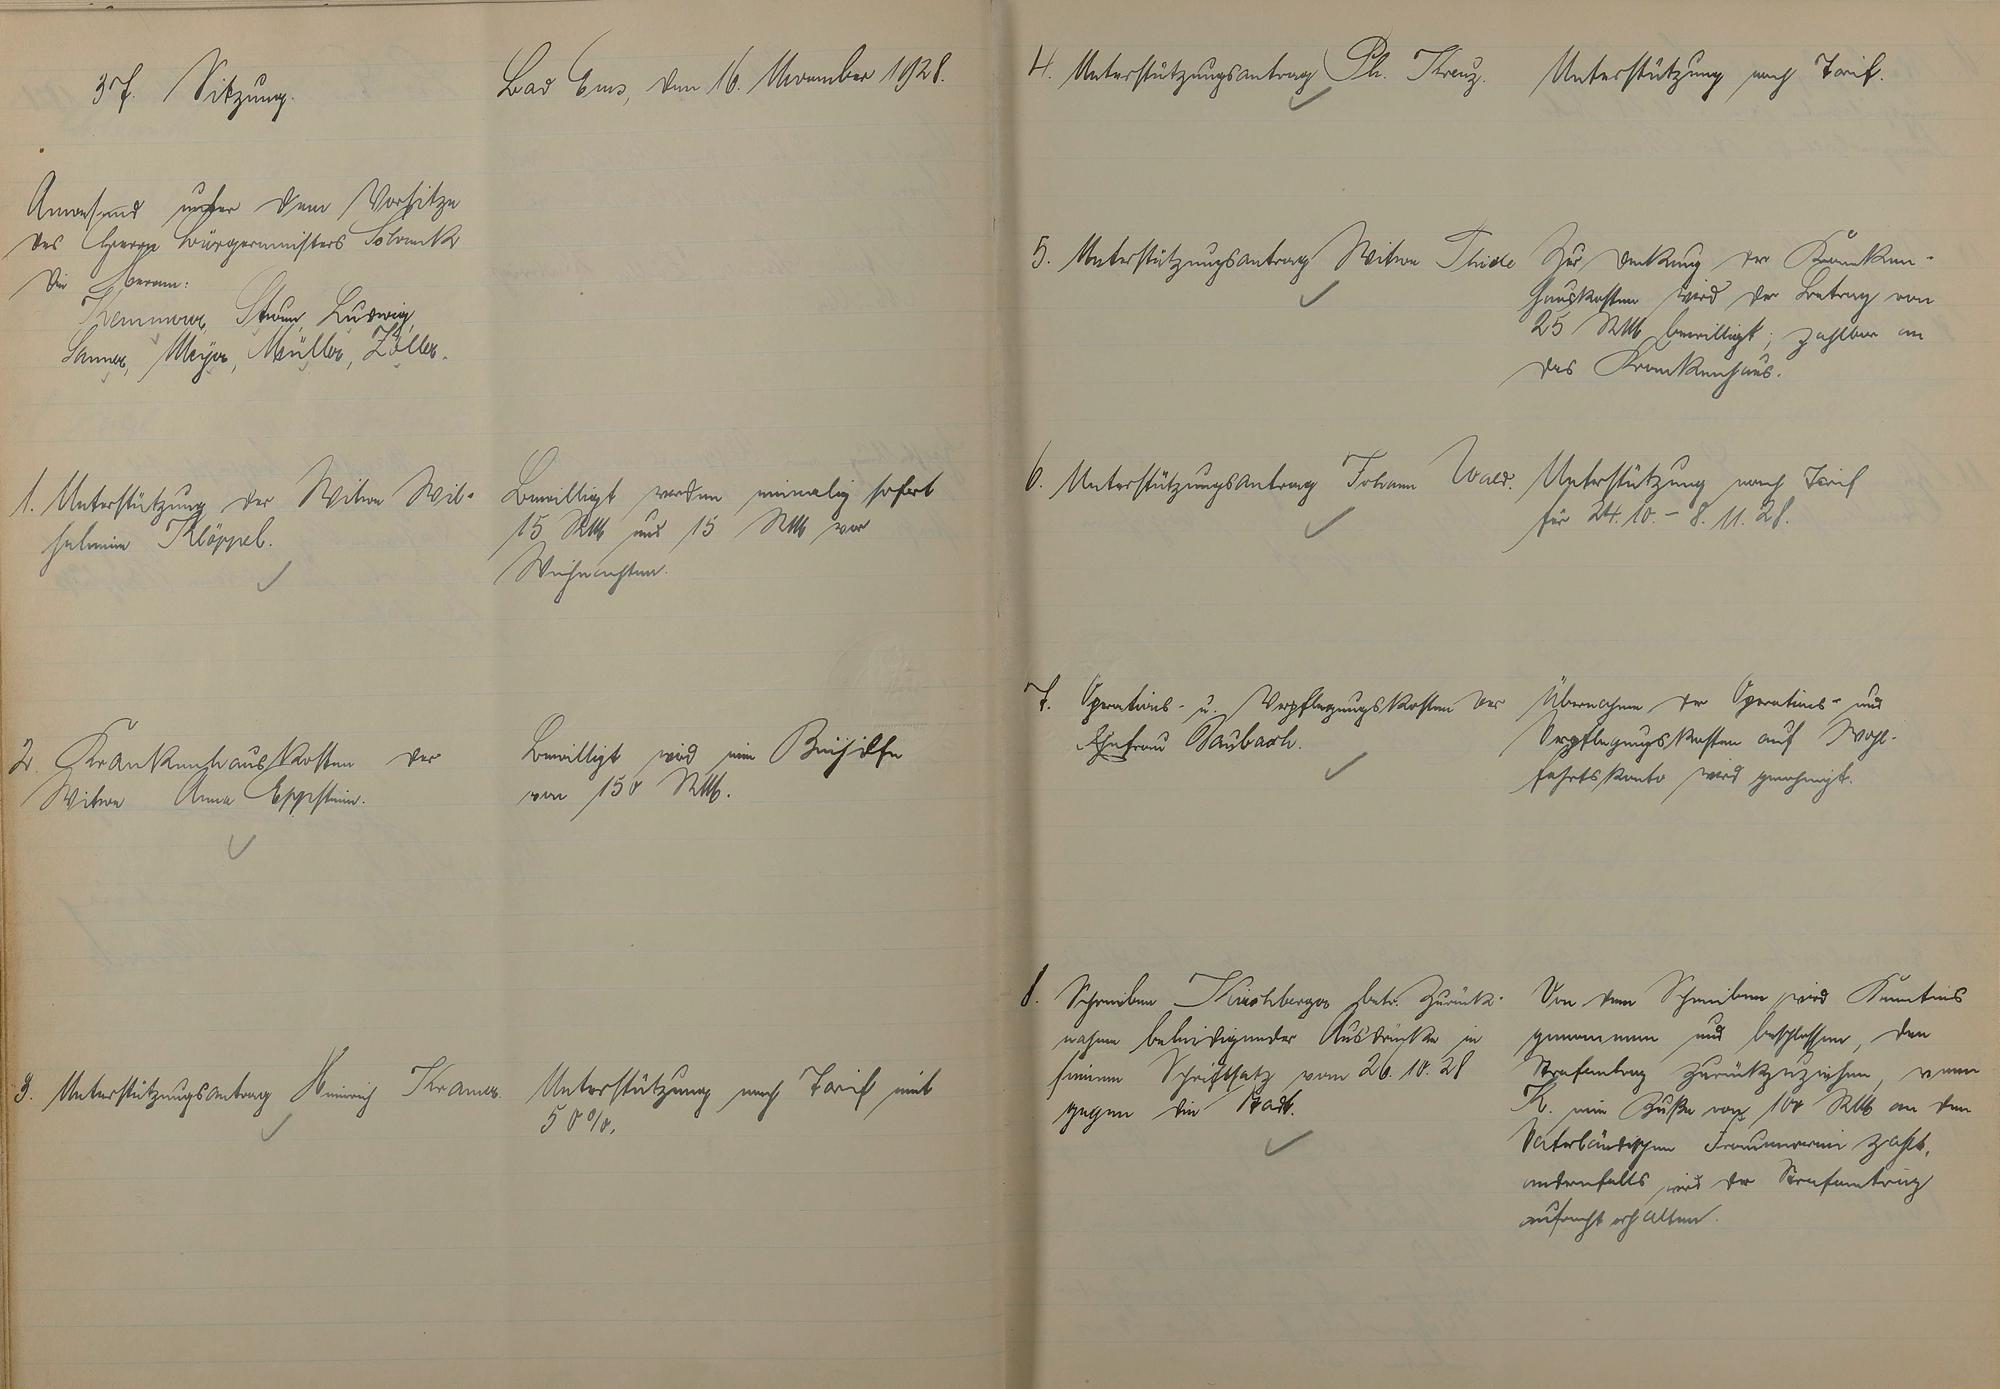 37. Sitzung.
Bad Ems, den 16. November 1928.
Anwesend unter dem Vorsitze
des Herrn Bürgermeisters Schranck
die Herren:
Kemmerer, Sturm, Ludwig,
Sanner, Meyer, Müller, Zöller.
1. Unterstützung der Witwe Wil-
helmine Klöppel.
Bewilligt werden einmalig sofort
15 RM und 15 RM vor
Weihnachten.
2. Krankenhauskosten der
Witwe Anna Eppstein.
Bewilligt wird eine Beihilfe
von 150 RM.
3. Unterstützungsantrag Heinrich Kramer.
Unterstützung nach Tarif mit
50%.
4. Unterstützungsantrag Ph. Kreuz.
Unterstützung nach Tarif.
5. Unterstützungsantrag Witwe Thiele
Zur Deckung der Kranken-
hauskosten wird der Betrag von
25 RM bewilligt, zahlbar an
das Krankenhaus.
6. Unterstützungsantrag Johann Wald.
Unterstützung nach Tarif
für 24.10. - 8.11.28.
7. Operations- u. Verpflegungskosten der
Ehefrau Paubach.
Übernahme der Operations- und
Verpflegungskosten auf Wohl-
fahrtskonto wird genehmigt.
8. Schreiben Kirchberger betr. Zurück-
nahme beleidigender Ausdrücke in
seinem Schriftsatz vom 26.10.28
gegen die Stadt.
Von dem Schreiben wird Kenntnis
genommen und beschlossen, den
Strafantrag zurückzuziehen, wenn
K. eine Buße von 100 RM an den
Vaterländischen Frauenverein zahlt,
andernfalls wird der Strafantrag
aufrecht erhalten.